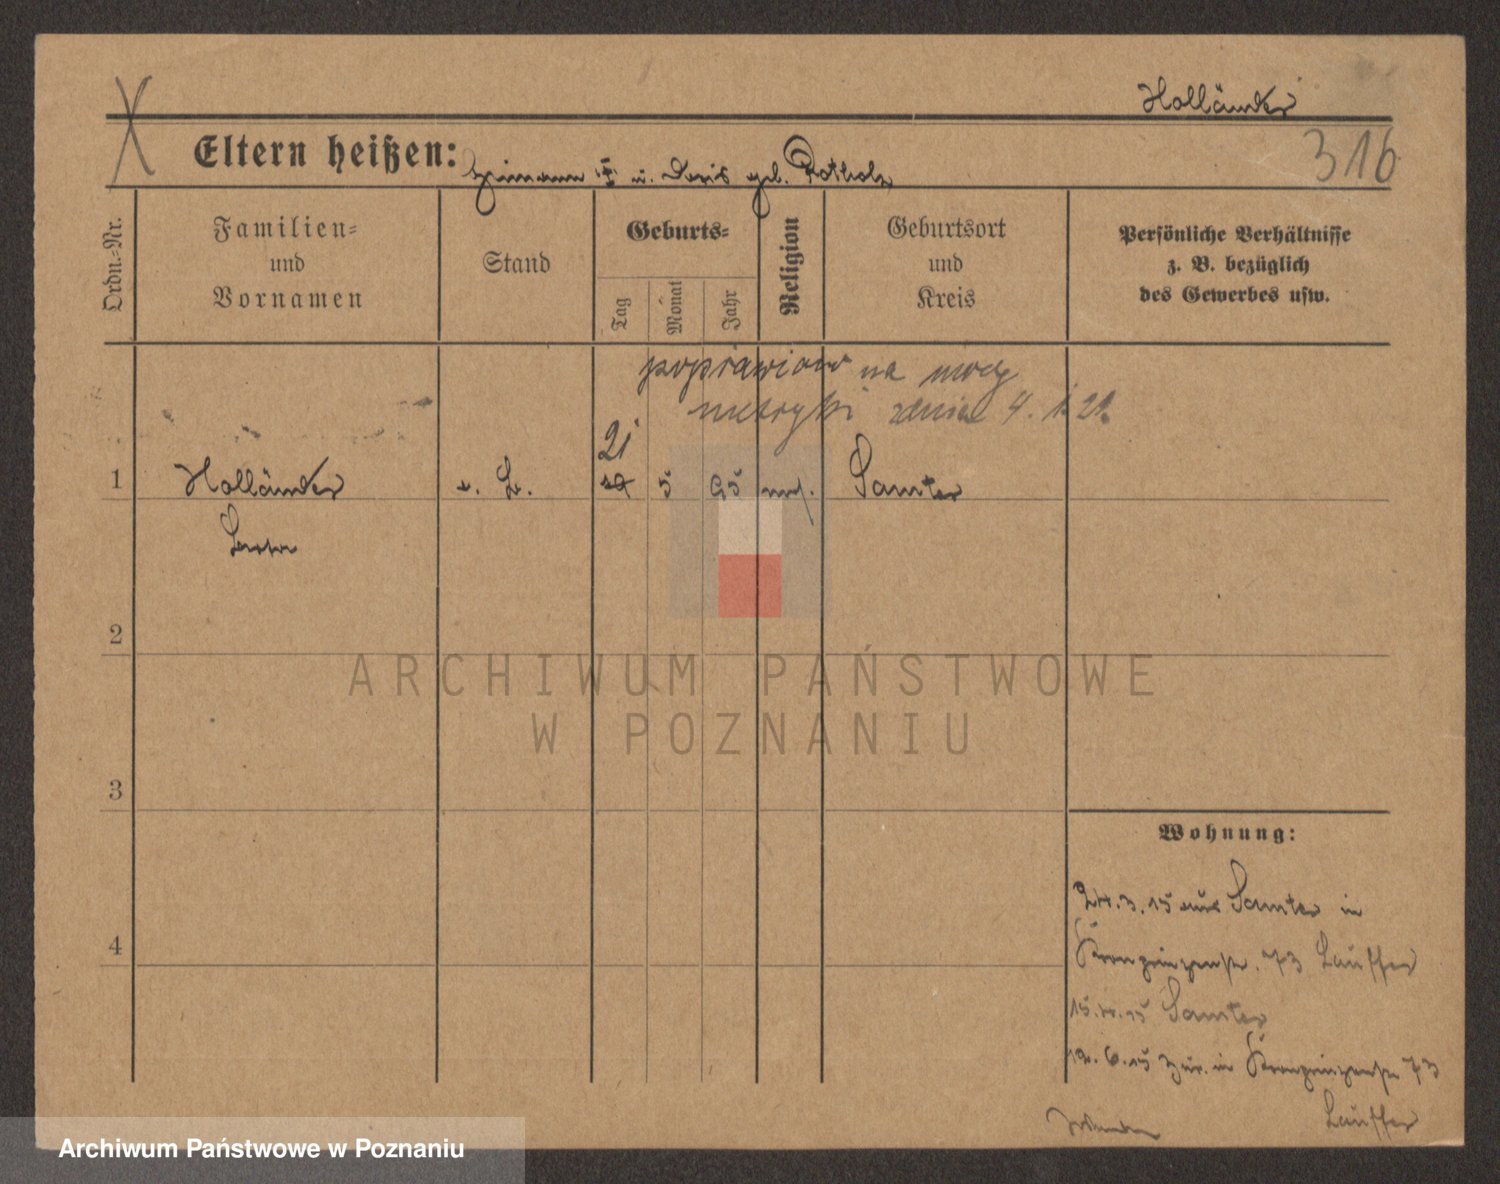 Holländer
316
Eltern heißen: Hermann † u. Doris geb. Rotholz
Ordn.-Nr.
Familien-
und
Vornamen
Stand
Geburts-
Tag
Monat
Jahr
Religion
Geburtsort
und
Kreis
Persönliche Verhältnisse
z. B. bezüglich
des Gewerbes usw.
poprawiono na mocy
metryki z dnia 4. 1. 21.
21
1 Holländer 5 95 mos. Samter
2
ARCHIWUM PAŃSTWOWE
W POZNANIU
3
4
Wohnung:
24.3.15 aus Samter in
Kronprinzenstr. 73 Lauffer
15.4.15 Samter
6.15 zur. in Kronprinzenstr 73
Lauffer
Archiwum Państwowe w Poznaniu